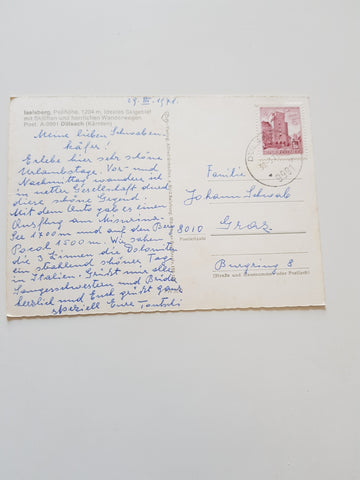 29. III. 1971.
Iselsberg, Paßhöhe, 1204 m, ideales Skigebiet
mit Skiliften und herrlichen Wanderwegen
Post: A-9991 Dölsach (Kärnten)
Meine lieben Schwaben-
käfer!
Erlebe hier sehr schöne
Urlaubstage. Vor- und
Nachmittag wandere ich
in netter Gesellschaft durch
diese schöne Gegend.
Mit dem Auto gab es einen
Ausflug am Misurina-
See 1700 m und auf den Berg
Pocol 1500 m. Wir sahen
die 3 Zinnen die Dolomiten
ein strahlend schöner Tag
in Italien. Grüßt mir alle
Sangesschwestern und Brüder
herzlich und Euch grüßt ganz
speziell Eure Tantschi
9991
Familie
Johann Schwab
8010 Graz
Postleitzahl
Burgring 8
(Straße und Hausnummer oder Postfach)